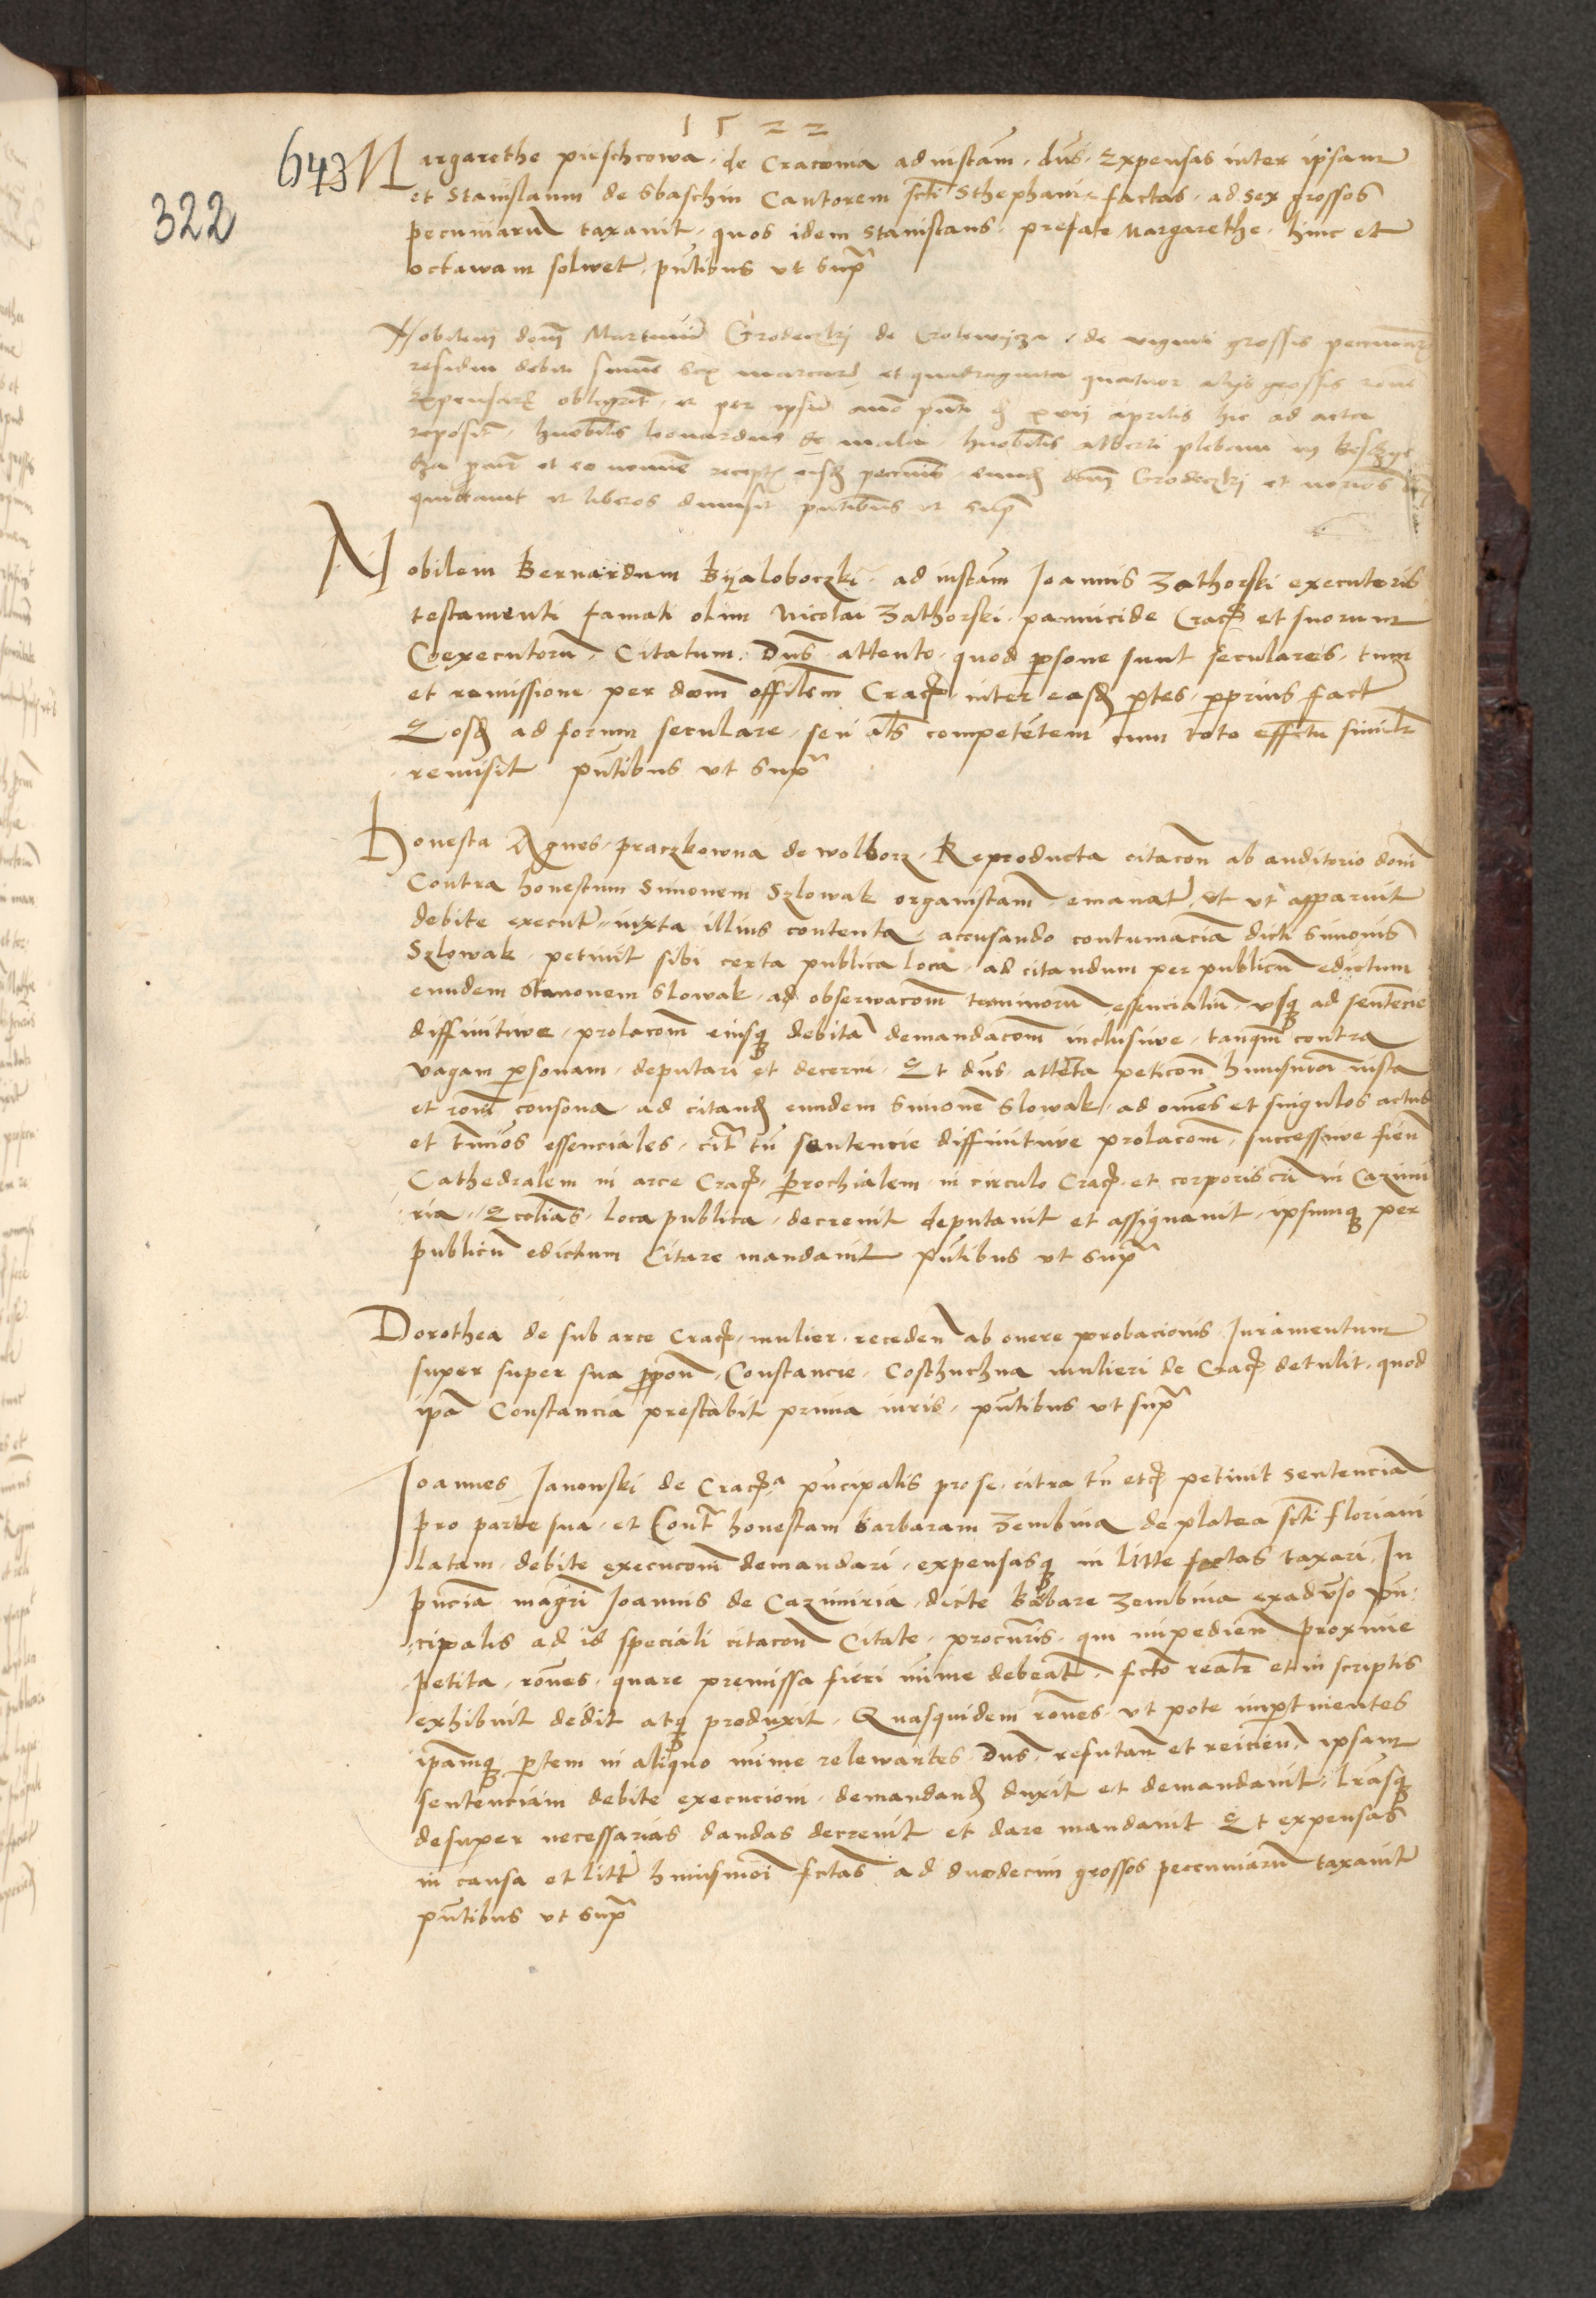 1522
643
322
Margarethe pieschcowa de Cracovia ad instam dns Expensas inter ipsam
et Stanislaum de Sbaschin Cantorem scti Sthephani factas ad sex grossos
pecuniaru taxavit quos idem Stanislaus prefate Margarethe hinc et
octawam solvet pntibus ut supra
Nobilem dom Martinu Grodeczki de de viginti grossis pecuniar
residui debiti sex marcaru et quadraginta quatuor alijs grossis
expensar obligat et per ipsu anno xvij aprilis hic ad acta
reposit leonardus de mala alberti plebani in
et eo nomine recept eisd pecunijs eund dom Grodeczki et
quittavit et liberos dimisit pntibus ut supra
Nobilem Bernardum Byaloboczki ad instam Joannis Zathorski executoris
testamenti famati olim Nicolai Zathorski pannicide Crac et suorum
Coexecutoru Citatum Dns attento quod psone sunt seculares tum
et remissione per dom offilem Crac inter easd ptes pprius fact
Eosd ad forum seculare seu als competetem cum toto effctu similr
remisit pntibus ut supra
Honesta Agnes praczkowna de wolborz Reproducta citacon ab auditorio dom
Contra honestum Simonem Szlowak organistam emanat et ut apparuit
debite execut iuxta illius contenta accusando contumacia dicti Simonis
Szlowak petivit sibi certa publica loca ad citandum per publicu edictum
eundem Simonem Slowak ad observacom terminoru essencialiu usq ad sentecie
diffinitive prolacom eiusq debita demandacom inclusive tanqm contra
vagam psonam deputari et decerni Et dns atteta peticon huiusmoi iusta
et roni consona ad citand eundem Simone Slowak ad omes et singulos actus
et tmios essenciales citra tn sentencie diffinitive prolacom successive fien
Cathedralem in arce Crac Parochialem in circulo Crac et corporis cri in Cazimi
ria Ecclias loca publica decrevit deputavit et assignavit ipsumq per
publicu edictum Citare mandavit pntibus ut supra
Dorothea de sub arce Crac mulier receden ab onere probacionis Juramentum
super super sua ppon Constancie Coschuchna mulieri de Crac detulit quod
ipa Constancia prestabit prima iuris pntibus ut supra
Joannes Janowski de Crac pncipalis pro se citra tn etc petivit sentencia
pro parte sua et Contra honestam Barbaram Zembina de platea scti Floriani
latam debite execucom demandari expensasq in litte factas taxari In
pncia magri Joannis de Cazimiria dicte Barbare Zembina exadvso pn
cipalis ad id speciali citacon Citate procuris qui impedien proxime
petita rones quare premissa fieri mime debeat fcto realr et in scriptis
exhibuit dedit atq produxit Quasquidem rones ut pote imptinentes
ipamq ptem in aliquo mime relevantes Dns refutan et reicien ipsam
sentenciam debite execucioni demandand duxit et demandavit lrasq
desuper necessarias dandas decrevit et dare mandavit Et expensas
in causa et litte huiusmoi fctas ad duodecim grossos peccuniaru taxavit
pntibus ut supra